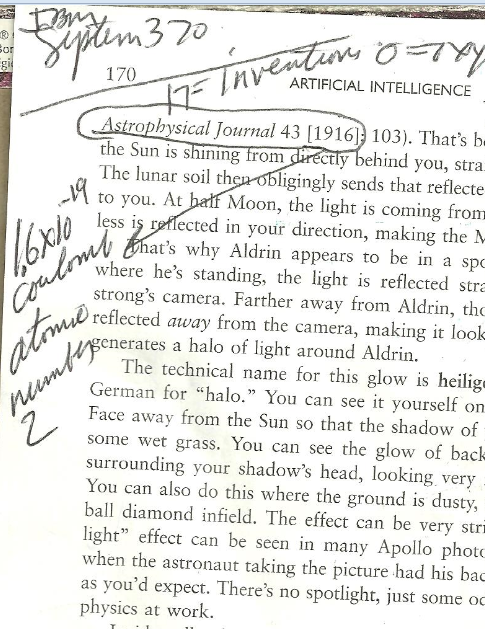 IBM
System 370
17 = Inventions 0 =
170
ARTIFICIAL INTELLIGENCE
Astrophysical Journal 43 [1916]: 103). That's b
the Sun is shining from directly behind you, stra
The lunar soil then obligingly sends that reflecte
to you. At half Moon, the light is coming from
less is reflected in your direction, making the M
That's why Aldrin appears to be in a spo
where he's standing, the light is reflected stra
strong's camera. Farther away from Aldrin, tho
reflected away from the camera, making it look
generates a halo of light around Aldrin.
The technical name for this glow is heilige
German for "halo." You can see it yourself on
Face away from the Sun so that the shadow of
some wet grass. You can see the glow of back
surrounding your shadow's head, looking very
You can also do this where the ground is dusty,
ball diamond infield. The effect can be very stri
light" effect can be seen in many Apollo photo
when the astronaut taking the picture had his bac
as you'd expect. There's no spotlight, just some od
physics at work.
1.6x10 -19
coulomb
atomic
number
2